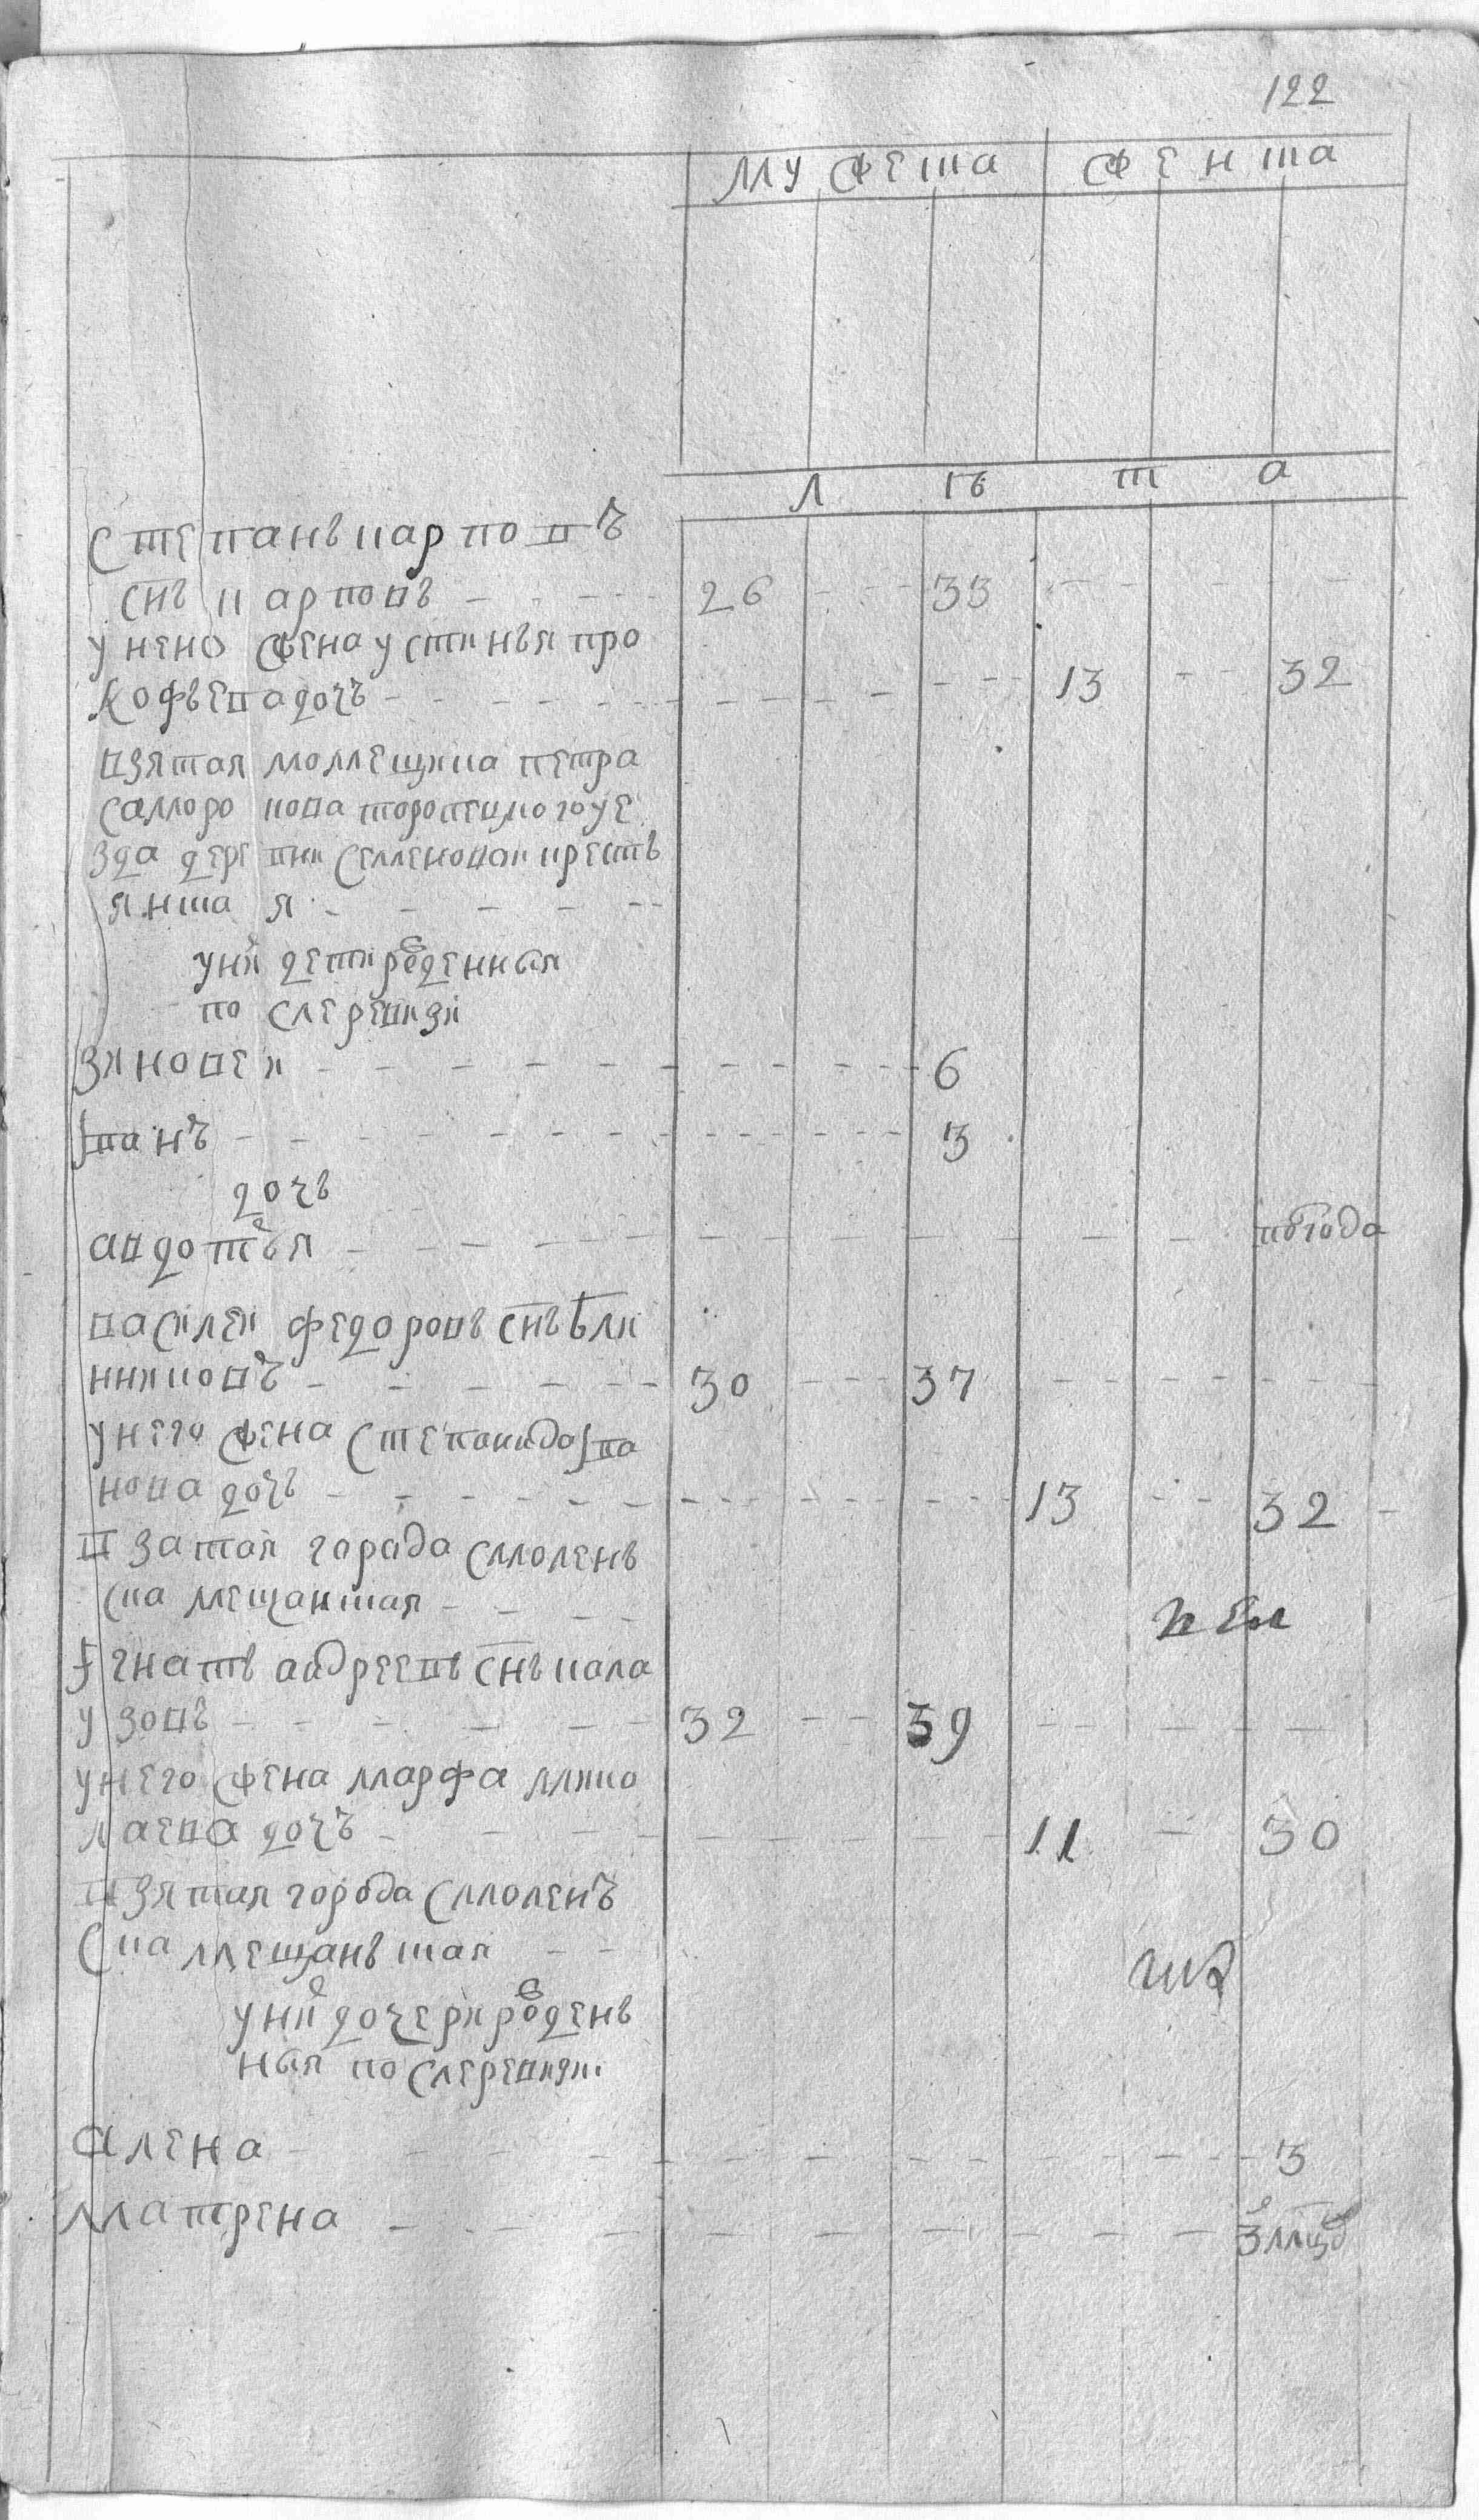 122
мужеска женска
л ѣ т а
Степанъ карповъ
снъ карповъ 26 33
у него жена устинья про
кофьева дочь 13 32
взятая помещика петра
самаро кова торопецкого уе
зда деревни Семеновои кресть
янская
у них дети рожденныя
после ревизи
зиновеи 6
Iванъ 3
дочь
авдотья полгода
василеи федоровъ снъ бли
нниковъ 30 37
у него жена степонида Iва
нова дочь 13 32
взатая города смолень
ска мещанская
Iгнатъ андреевъ снъ кала
узовъ 32 39
у него жена марфа мико
лаева дочъ 11 30
взятая города смоленъ
ска мещанъская
у них дочери рожденъ
ныя после ревизи
алена 3
матрена 3 мцов